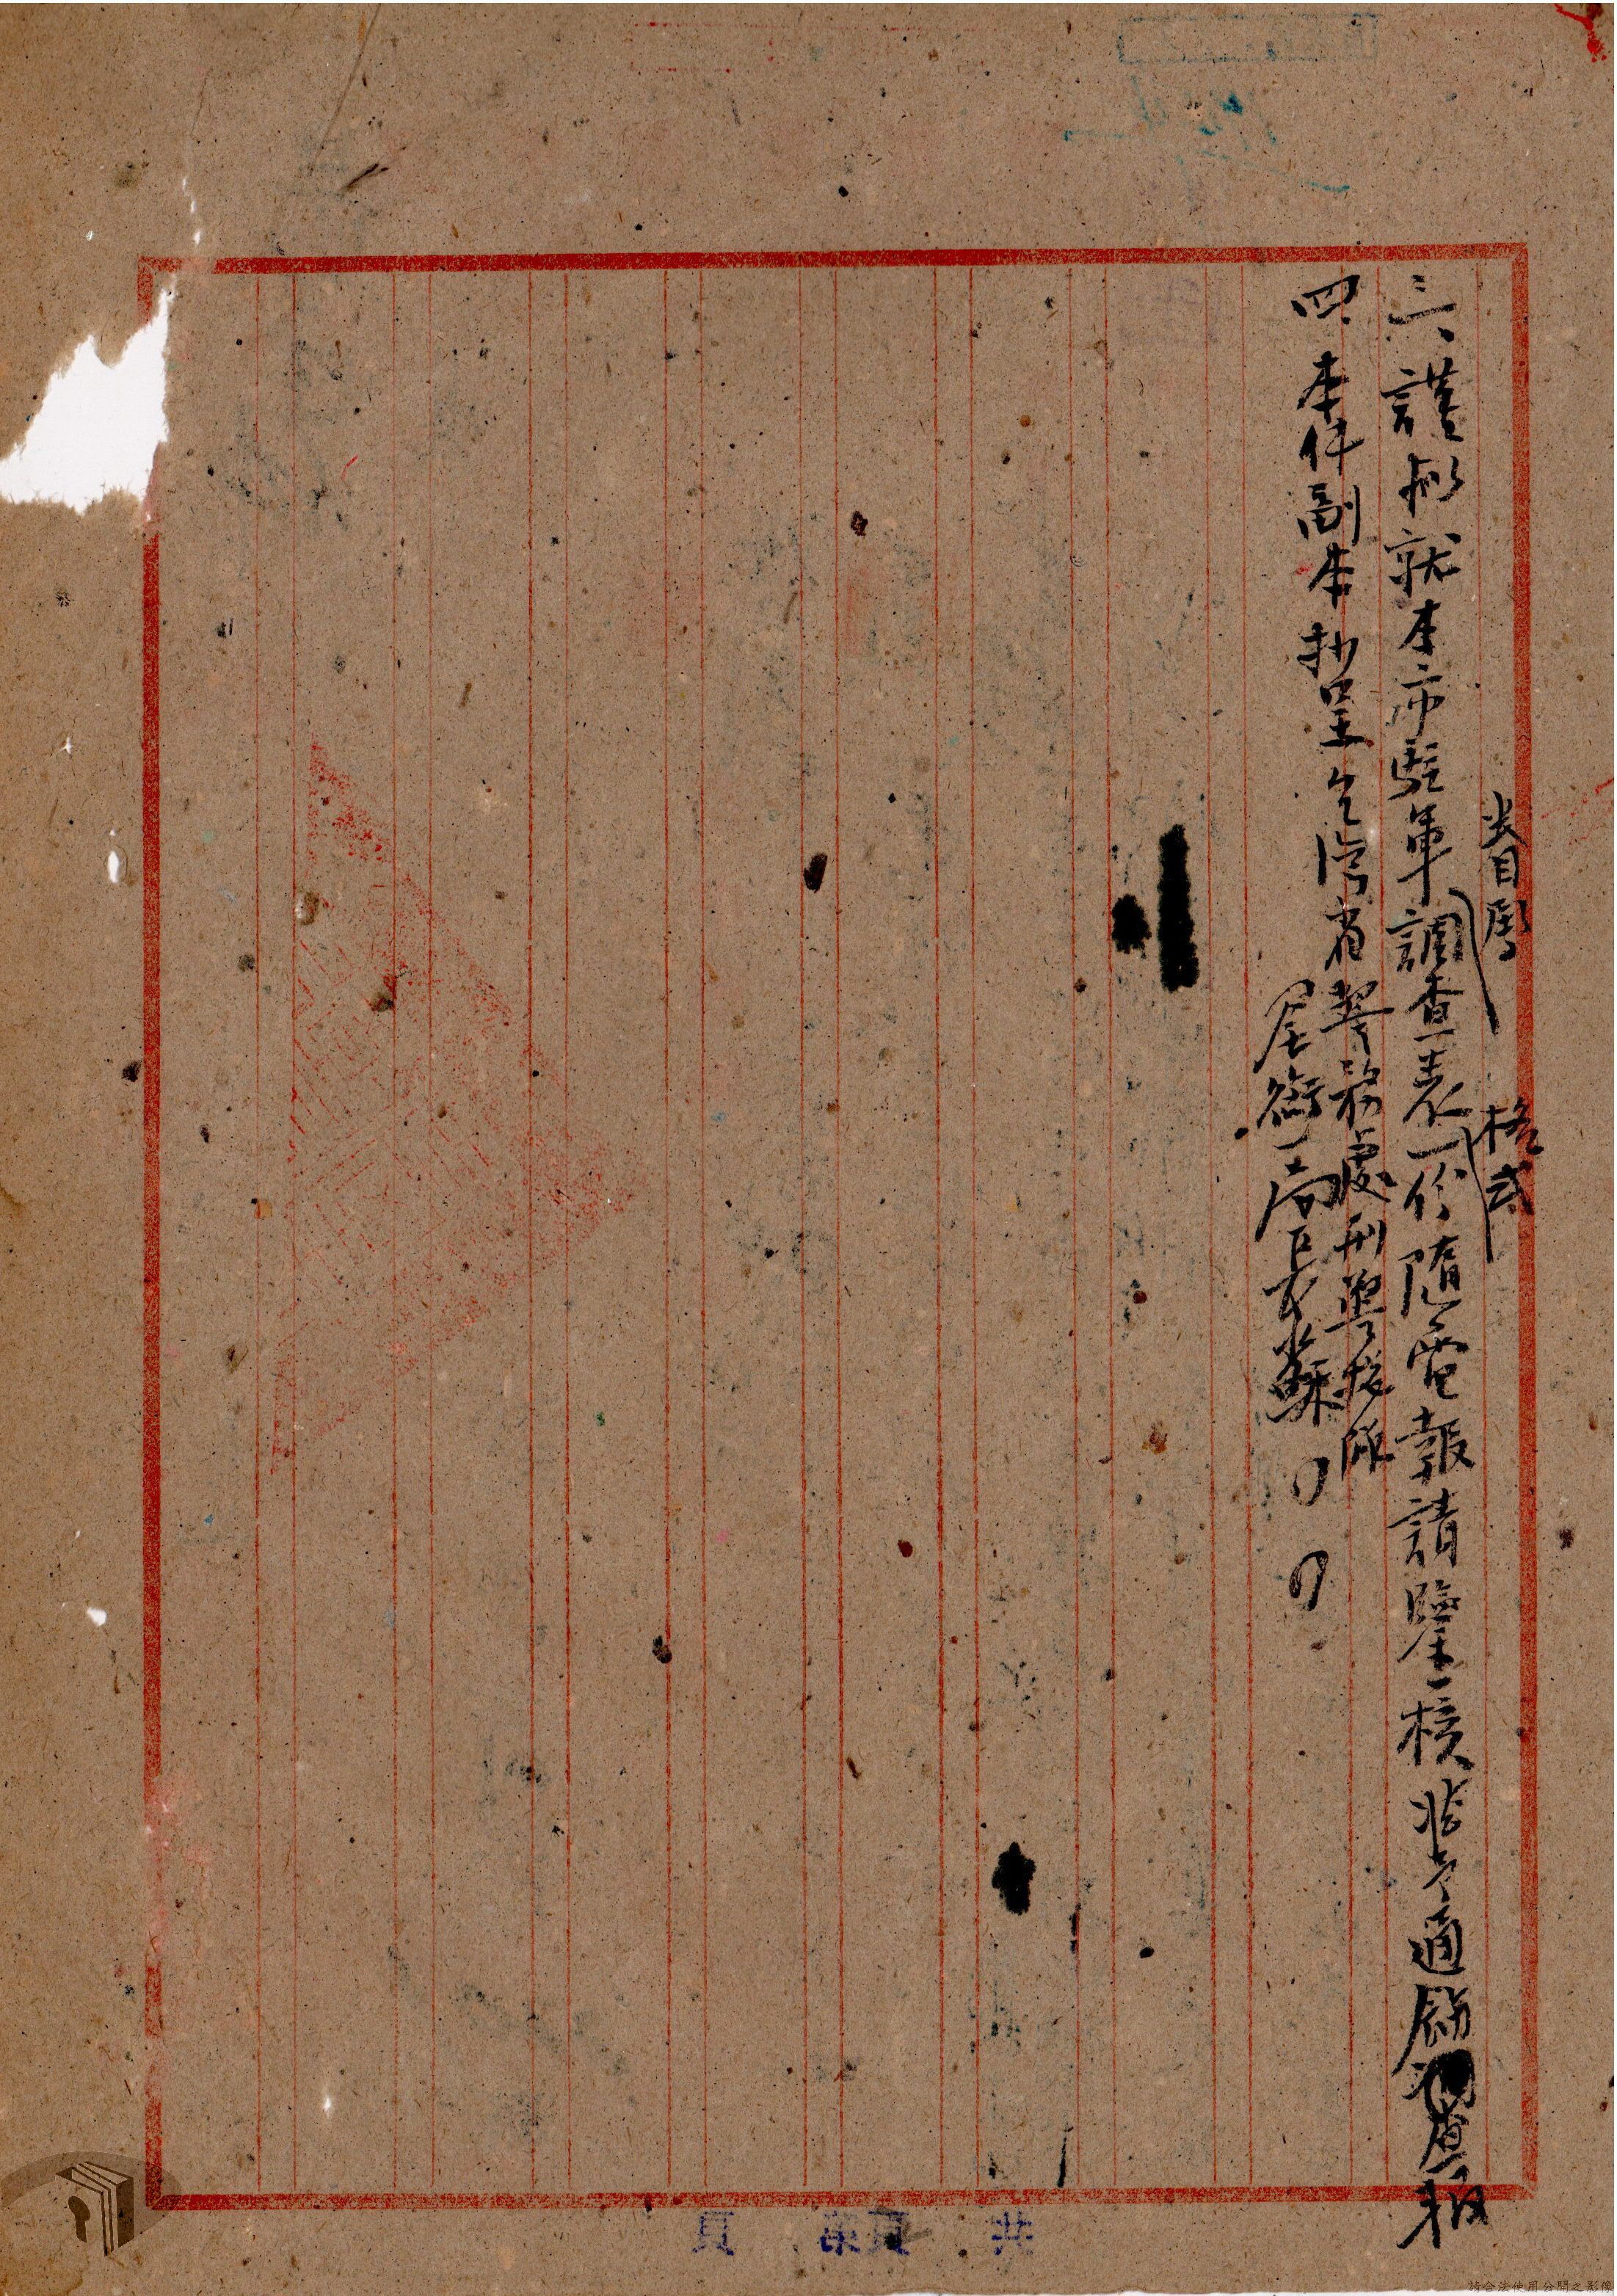 三、謹擬就本市駐軍調查表一份隨電報請鑒核准予通飭調查報
眷屬
格式
四、本件副本抄呈台灣省警務處刑警總隊
全銜局長蘇〇〇
共 頁第 頁